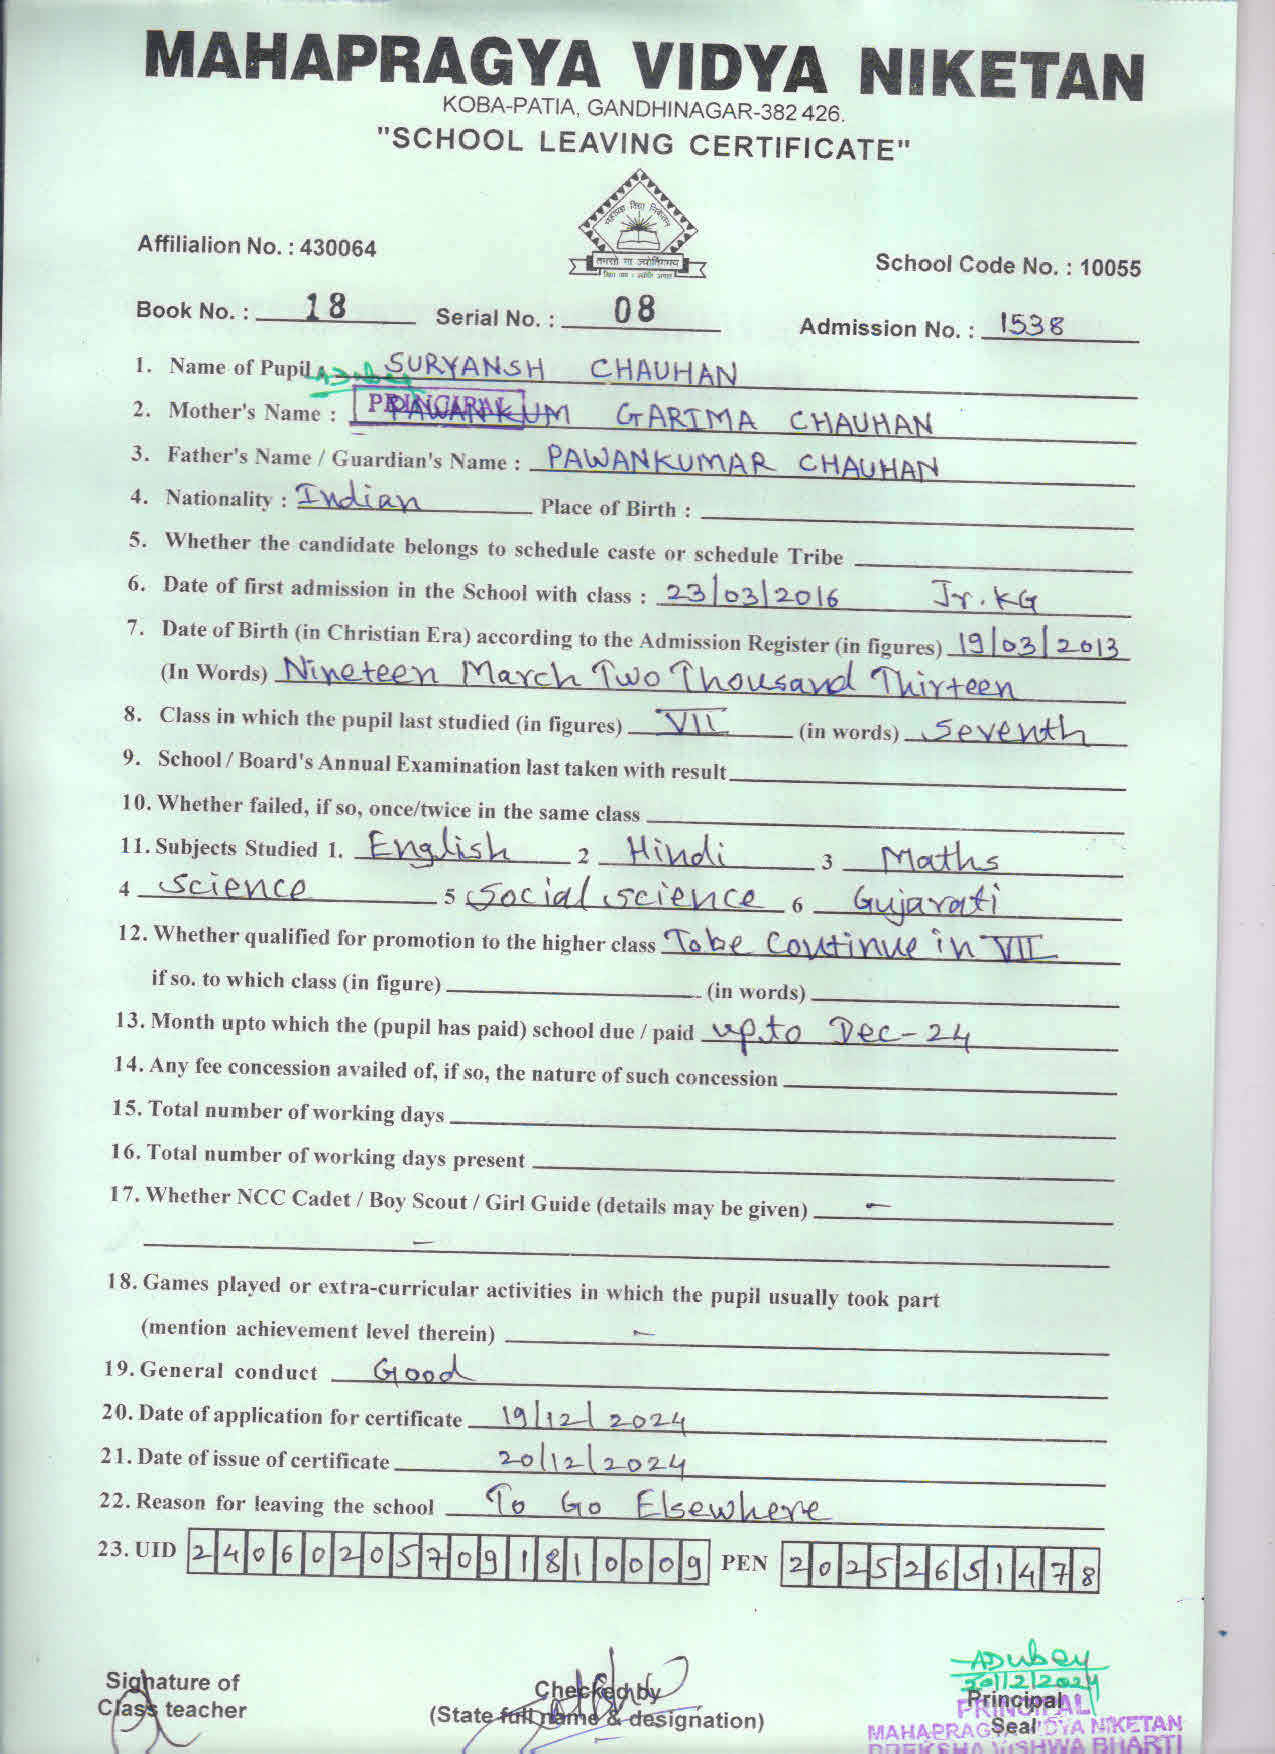 MAHAPRAGYA VIDYA NIKETAN
KOBA-PATIA, GANDHINAGAR-382 426.
"SCHOOL LEAVING CERTIFICATE"
महाप्रज्ञ विद्या निकेतन
तमसो मा ज्योतिर्गमय
Affilialion No. : 430064
School Code No. : 10055
Book No. : 18 Serial No. : 08 Admission No. : 1538
1. Name of Pupil : SURYANSH CHAUHAN
ADubey
PRINCIPAL
2. Mother's Name : PAWANKUM GARIMA CHAUHAN
3. Father's Name / Guardian's Name : PAWANKUMAR CHAUHAN
4. Nationality : Indian Place of Birth :
5. Whether the candidate belongs to schedule caste or schedule Tribe
6. Date of first admission in the School with class : 23/03/2016 Jr. KG
7. Date of Birth (in Christian Era) according to the Admission Register (in figures) 19/03/2013
(In Words) Nineteen March Two Thousand Thirteen
8. Class in which the pupil last studied (in figures) VII (in words) Seventh
9. School / Board's Annual Examination last taken with result
10. Whether failed, if so, once/twice in the same class
11. Subjects Studied 1. English 2 Hindi 3 Maths
4 Science 5 Social science 6 Gujarati
12. Whether qualified for promotion to the higher class To be Continue in VII
if so. to which class (in figure) (in words)
13. Month upto which the (pupil has paid) school due / paid up to Dec-24
14. Any fee concession availed of, if so, the nature of such concession
15. Total number of working days
16. Total number of working days present
17. Whether NCC Cadet / Boy Scout / Girl Guide (details may be given) –
–
18. Games played or extra-curricular activities in which the pupil usually took part
(mention achievement level therein) –
19. General conduct Good
20. Date of application for certificate 19/12/2024
21. Date of issue of certificate 20/12/2024
22. Reason for leaving the school To Go Elsewhere
23. UID 240602057091810009 PEN 20252651478
ADubey
20/12/2024
Signature of
Class teacher
Checked by
(State full name & designation)
Principal
Seal
PRINCIPAL
MAHAPRAGYA VIDYA NIKETAN
PREKSHA VISHWA BHARTI